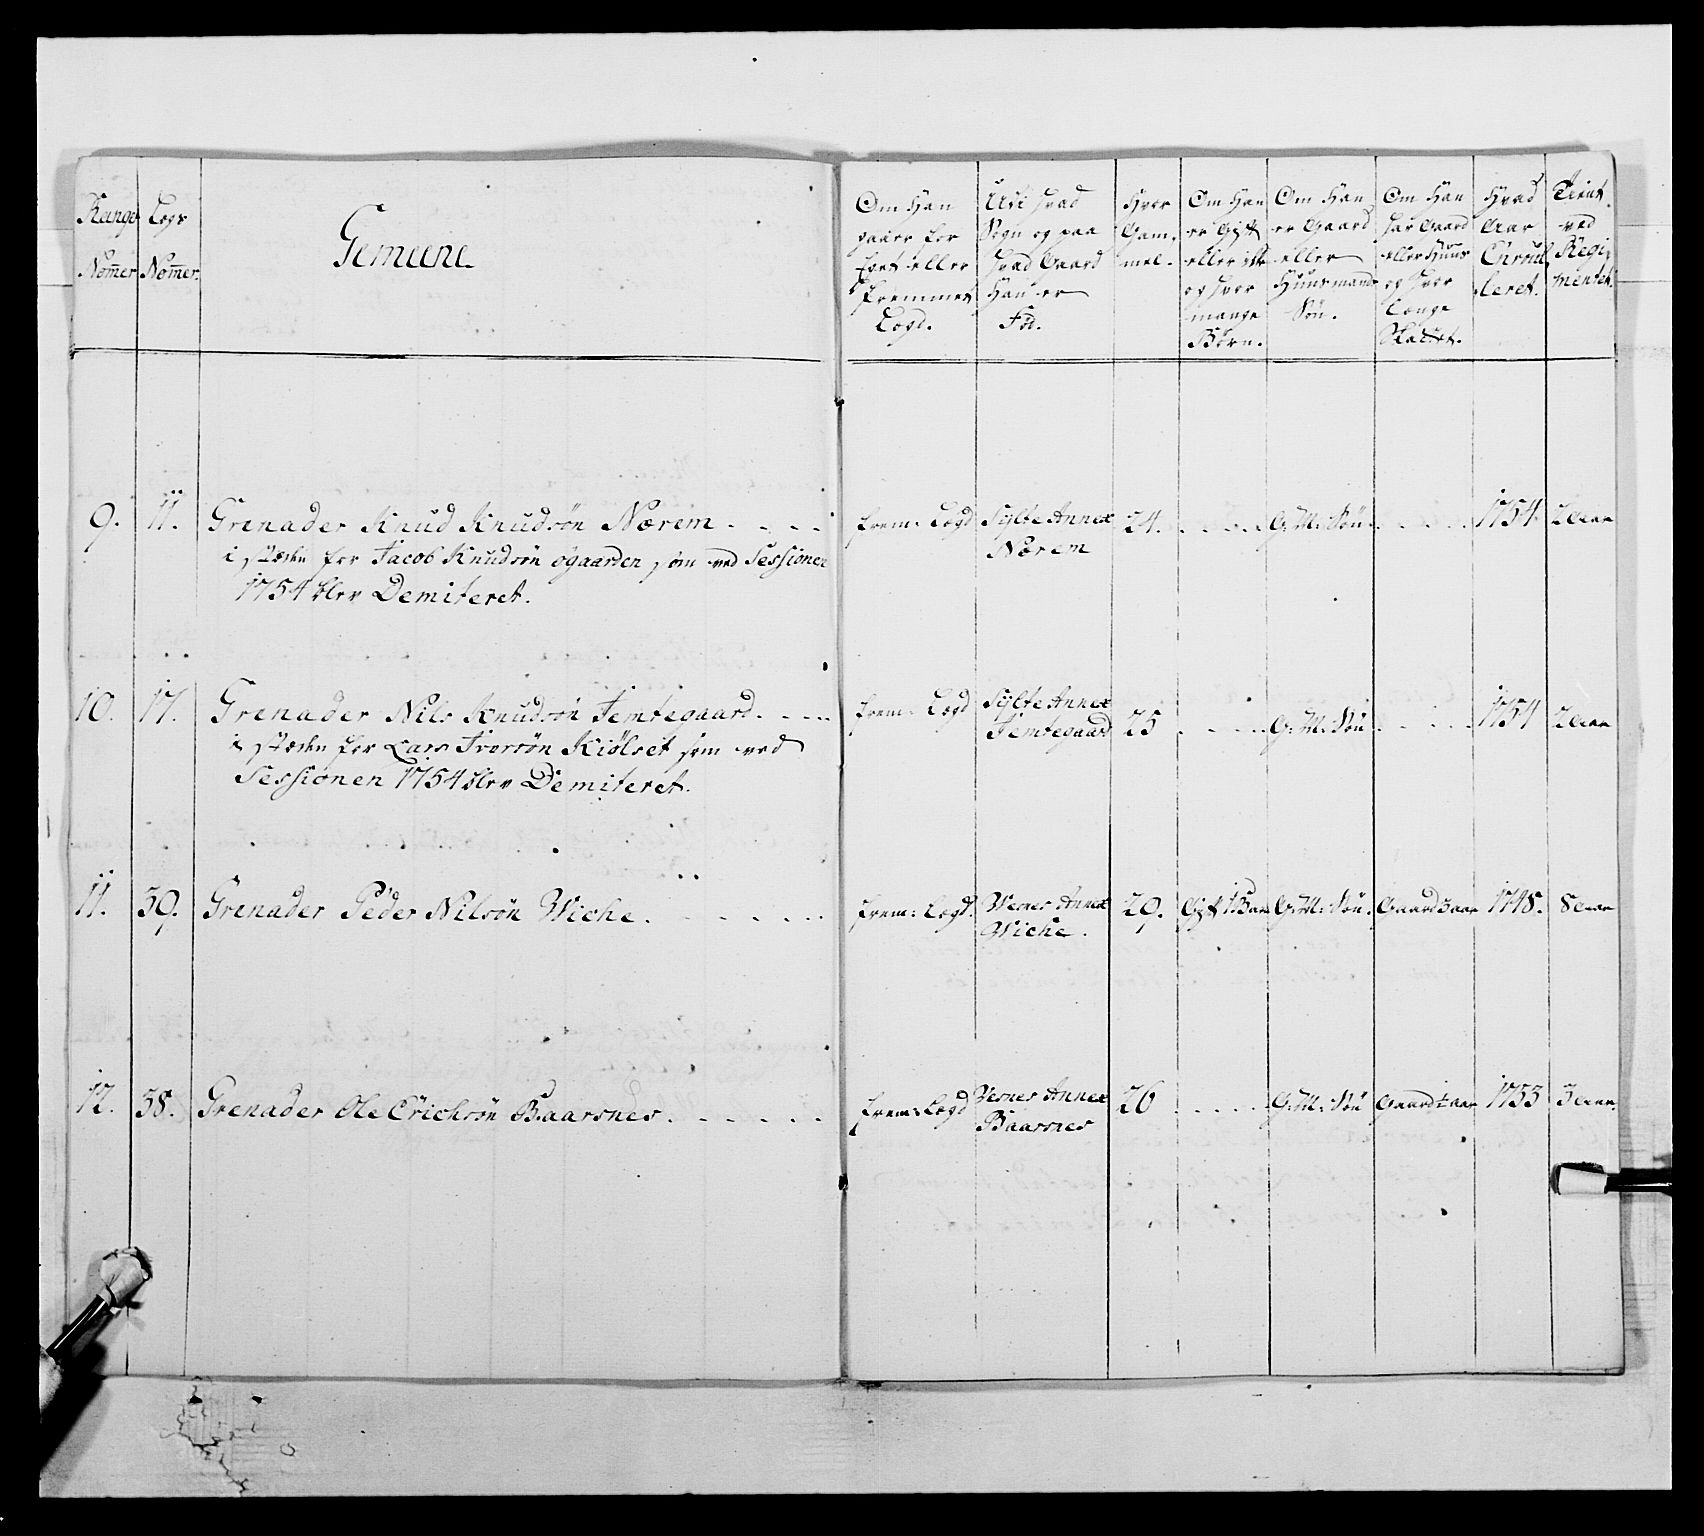 Range Legs
Nomer Nomer.
Gemeene
Om Han
gaaer for
fast eller
fremmet
Legd.
Udi hvad
Sogn og paa
hvad Gaard
Han er
Fød.
Hvor
Gam-
mel.
Om Han
er Gift
eller ikke
og hvor
mange
Børn.
Om Han
er Gaard
eller
Huusmands
Søn.
Om Han
har Gaard
eller Huus
og hvor
Længe
Skattet.
Hvad
Aar
Enroul-
leret.
Tient
ved
Regi-
mentet.
9. 11. Grenader Knud Knudsøn Nærem . . . . frem: Legd Sylte Annex 24. . . . . G: M: Søn . . . . 1754. 2 Aar
Nærem
i stæden for Jacob Knudsøn øgaarden som ved Sessionen
1754 blev Demiteret.
10. 17. Grenader Nils Knudsøn Temtegaard . . . . frem: Legd Sylte Annex 25 . . . . G: M: Søn . . . . 1754 2 Aar
Temtegaard
i stæden for Lars Iversøn Kiølset som ved
Sessionen 1754 blev Demiteret.
11. 39. Grenader Peder Nilsøn Wiche . . . . . . frem: Legd. Vesnes Annex 29. Gift 1 Barn G: M: Søn. Gaard 3 aar 1748. 8 Aar
Wiche.
12. 38. Grenader Ole Erichsøn Baarsnes . . . . . . frem: Legd Vesnes Annex 26 . . . . G: M: Søn Gaard 1 aar 1753 3 Aar.
Baarsnes